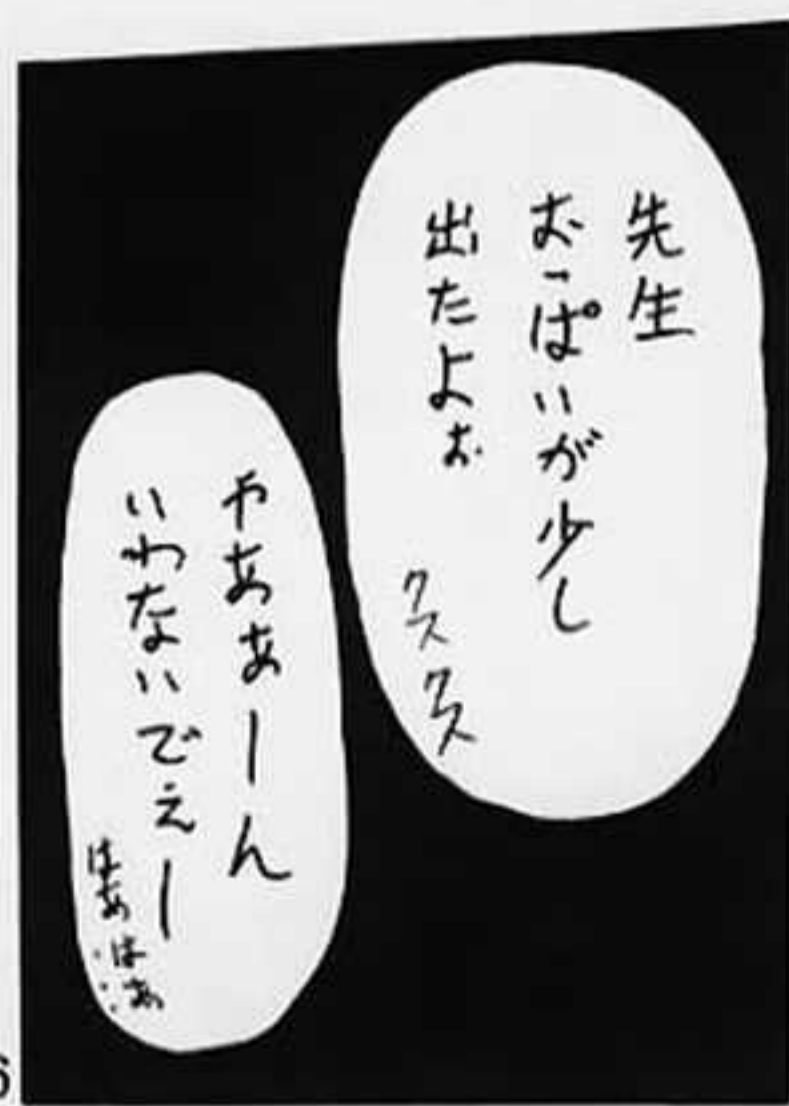 先生
おっぱいが少し
出たよぉ
クスクス
やあぁーん
いわないでぇー
はあはぁ……
6